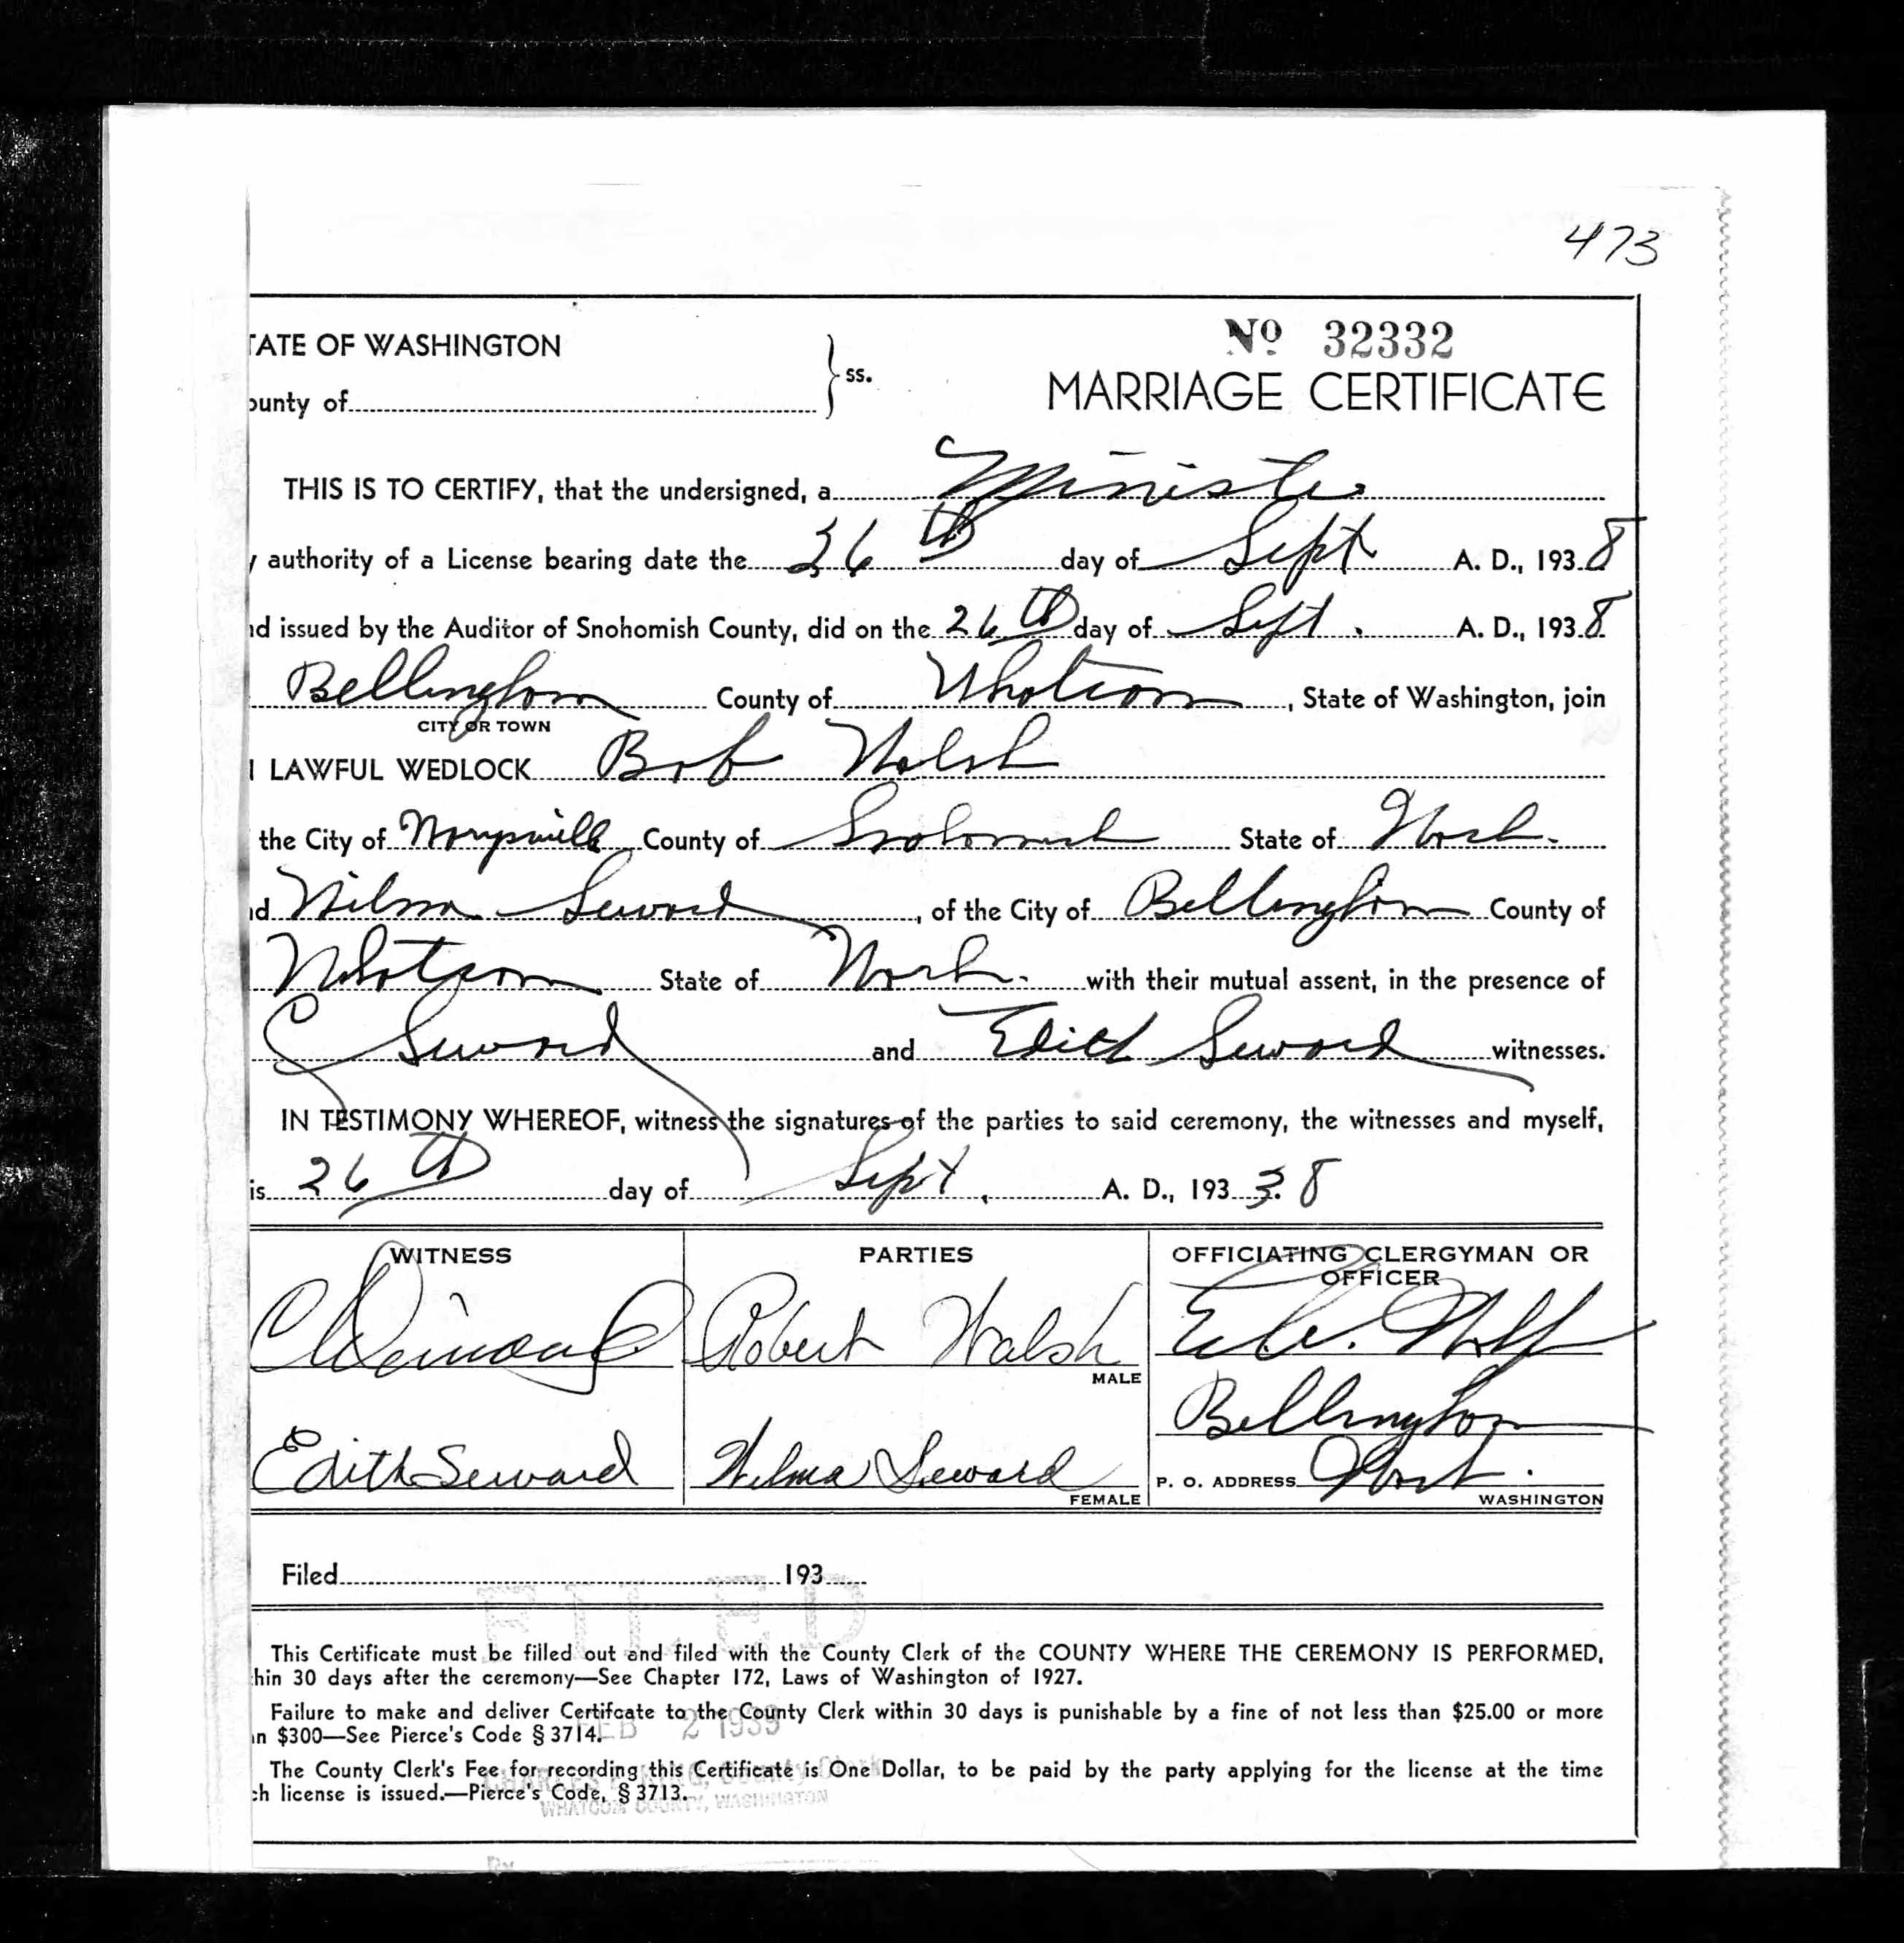 473
TATE OF WASHINGTON
ounty of
} ss.
No 32332
MARRIAGE CERTIFICATE
THIS IS TO CERTIFY, that the undersigned, a Minister
y authority of a License bearing date the 26th day of Sept A. D., 1938
nd issued by the Auditor of Snohomish County, did on the 26th day of Sept. A. D., 1938
Bellingham County of Whatcom, State of Washington, join
CITY OR TOWN
N LAWFUL WEDLOCK Bob Walsh
the City of Marysville County of Snohomish State of Wash.
nd Wilma Seward, of the City of Bellingham County of
Whatcom State of Wash. with their mutual assent, in the presence of
C Seward and Edith Seward witnesses.
IN TESTIMONY WHEREOF, witness the signatures of the parties to said ceremony, the witnesses and myself,
is 26th day of Sept. A. D., 193 38
WITNESS
PARTIES
OFFICIATING CLERGYMAN OR
OFFICER
C Seward
Robert Walsh
MALE
Bellingham
Edith Seward
Wilma Seward
FEMALE
P. O. ADDRESS Wash.
WASHINGTON
Filed 193
FILED
This Certificate must be filled out and filed with the County Clerk of the COUNTY WHERE THE CEREMONY IS PERFORMED,
hin 30 days after the ceremony—See Chapter 172, Laws of Washington of 1927.
Failure to make and deliver Certifcate to the County Clerk within 30 days is punishable by a fine of not less than $25.00 or more
an $300—See Pierce's Code § 3714.
FEB 2 1939
The County Clerk's Fee for recording this Certificate is One Dollar, to be paid by the party applying for the license at the time
ch license is issued.—Pierce's Code, § 3713.
County Clerk
WHATCOM COUNTY, WASHINGTON
By